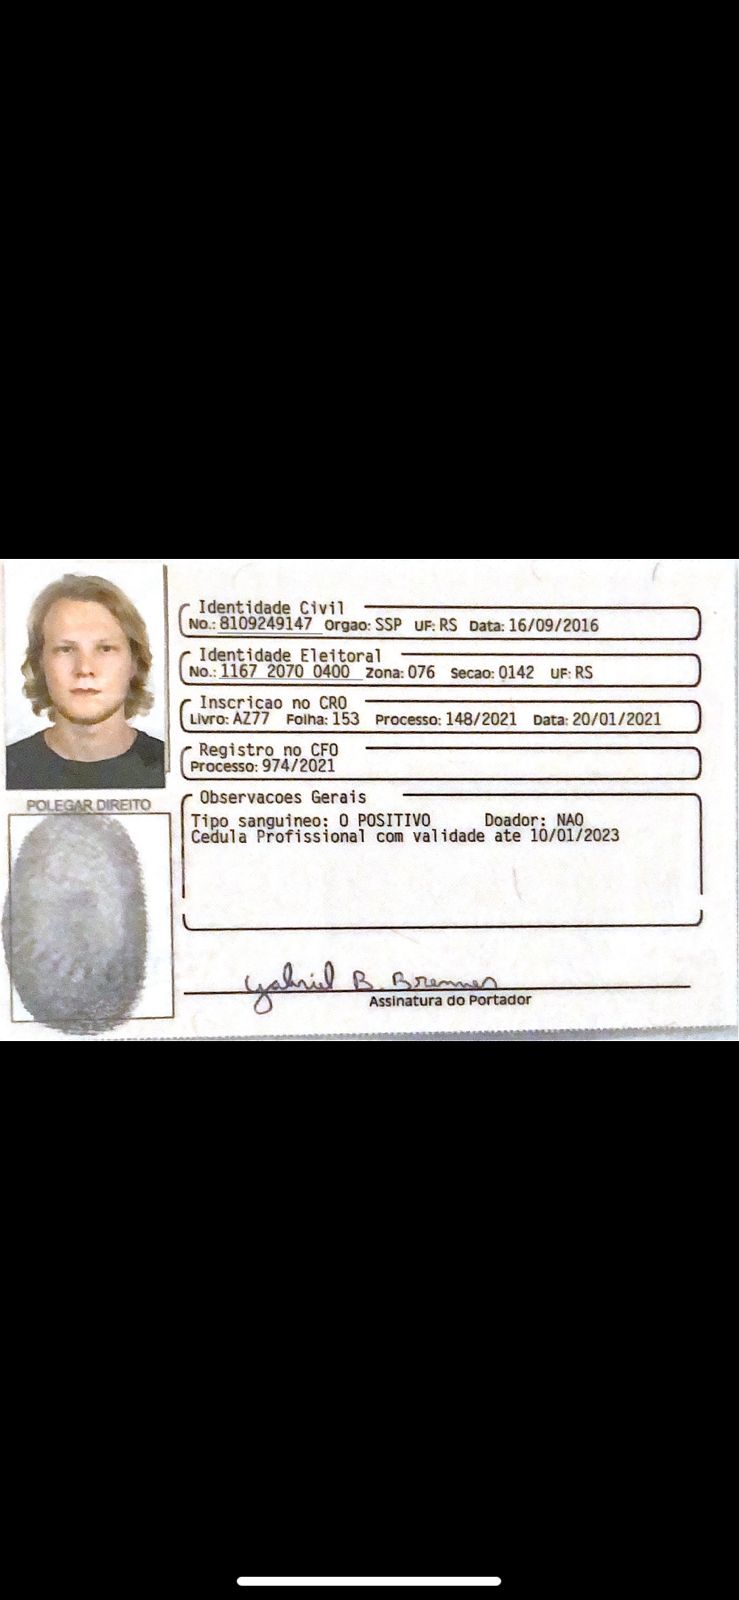 Identidade Civil
No.: 8109249147 Orgao: SSP UF: RS Data: 16/09/2016
Identidade Eleitoral
No.: 1167 2070 0400 Zona: 076 Secao: 0142 UF: RS
Inscricao no CRO
Livro: AZ77 Folha: 153 Processo: 148/2021 Data: 20/01/2021
Registro no CFO
Processo: 974/2021
POLEGAR DIREITO
Observacoes Gerais
Tipo sanguineo: O POSITIVO Doador: NAO
Cedula Profissional com validade ate 10/01/2023
Gabriel B. Brenner
Assinatura do Portador